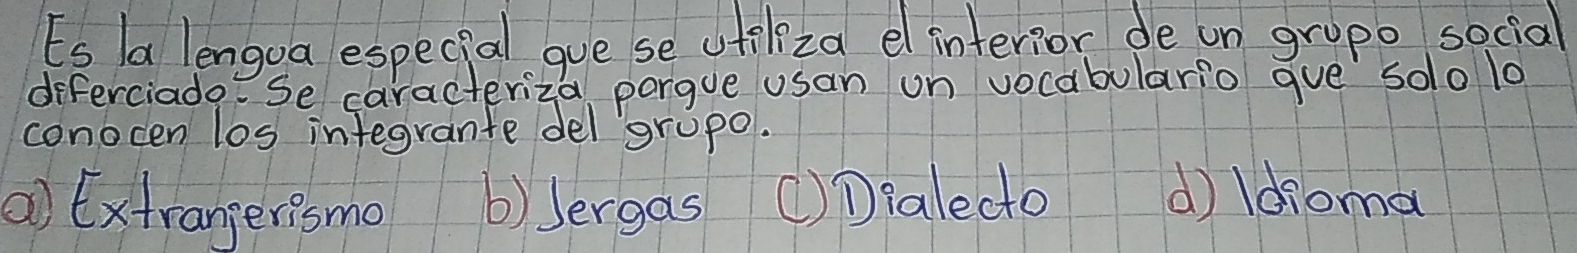 Es la lengua especial que se utiliza el interior de un grupo social
diferciado. Se caracteriza porque usan un vocabulario que solo lo
conocen los integrante del grupo.
a) Extranjerismo b) Jergas C) Dialecto d) Idioma